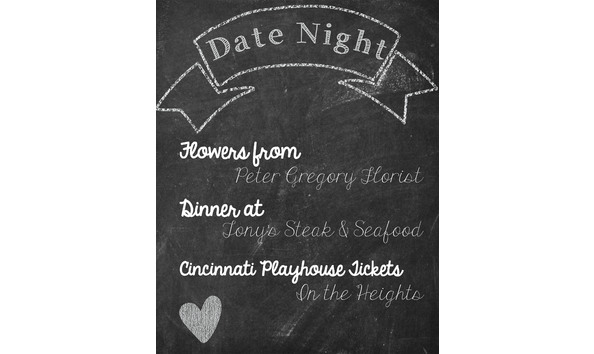 Date Night
Flowers from
Peter Gregory Florist
Dinner at
Tony's Steak & Seafood
Cincinnati Playhouse Tickets
In the Heights